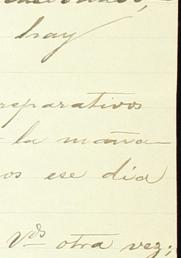 hay
reparativos
la maña-
os ese dia
Vds otra vez;